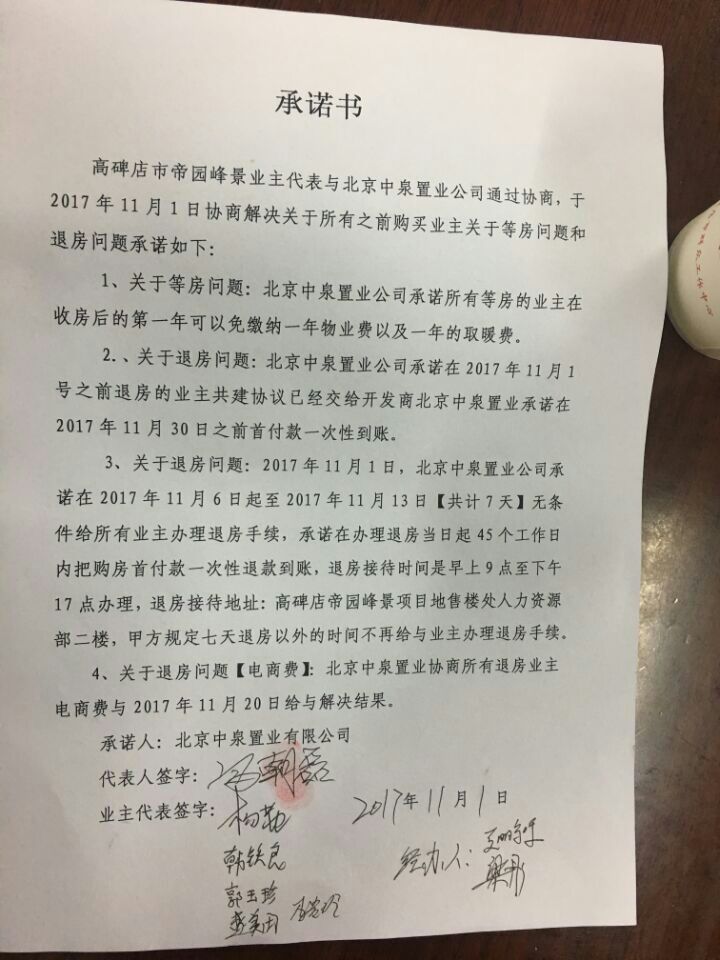 承诺书
高碑店市帝园峰景业主代表与北京中泉置业公司通过协商，于
2017 年 11 月 1 日协商解决关于所有之前购买业主关于等房问题和
退房问题承诺如下：
1、关于等房问题：北京中泉置业公司承诺所有等房的业主在
收房后的第一年可以免缴纳一年物业费以及一年的取暖费。
2.、关于退房问题：北京中泉置业公司承诺在 2017 年 11 月 1
号之前退房的业主共建协议已经交给开发商北京中泉置业承诺在
2017 年 11 月 30 日之前首付款一次性到账。
3、关于退房问题：2017 年 11 月 1 日，北京中泉置业公司承
诺在 2017 年 11 月 6 日起至 2017 年 11 月 13 日【共计 7 天】无条
件给所有业主办理退房手续，承诺在办理退房当日起 45 个工作日
内把购房首付款一次性退款到账，退房接待时间是早上 9 点至下午
17 点办理，退房接待地址：高碑店帝园峰景项目地售楼处人力资源
部二楼，甲方规定七天退房以外的时间不再给与业主办理退房手续。
4、关于退房问题【电商费】：北京中泉置业协商所有退房业主
电商费与 2017 年 11 月 20 日给与解决结果。
承诺人：北京中泉置业有限公司
代表人签字：
业主代表签字： 2017年11月1日
韩铁良 经办人：
郭玉珍